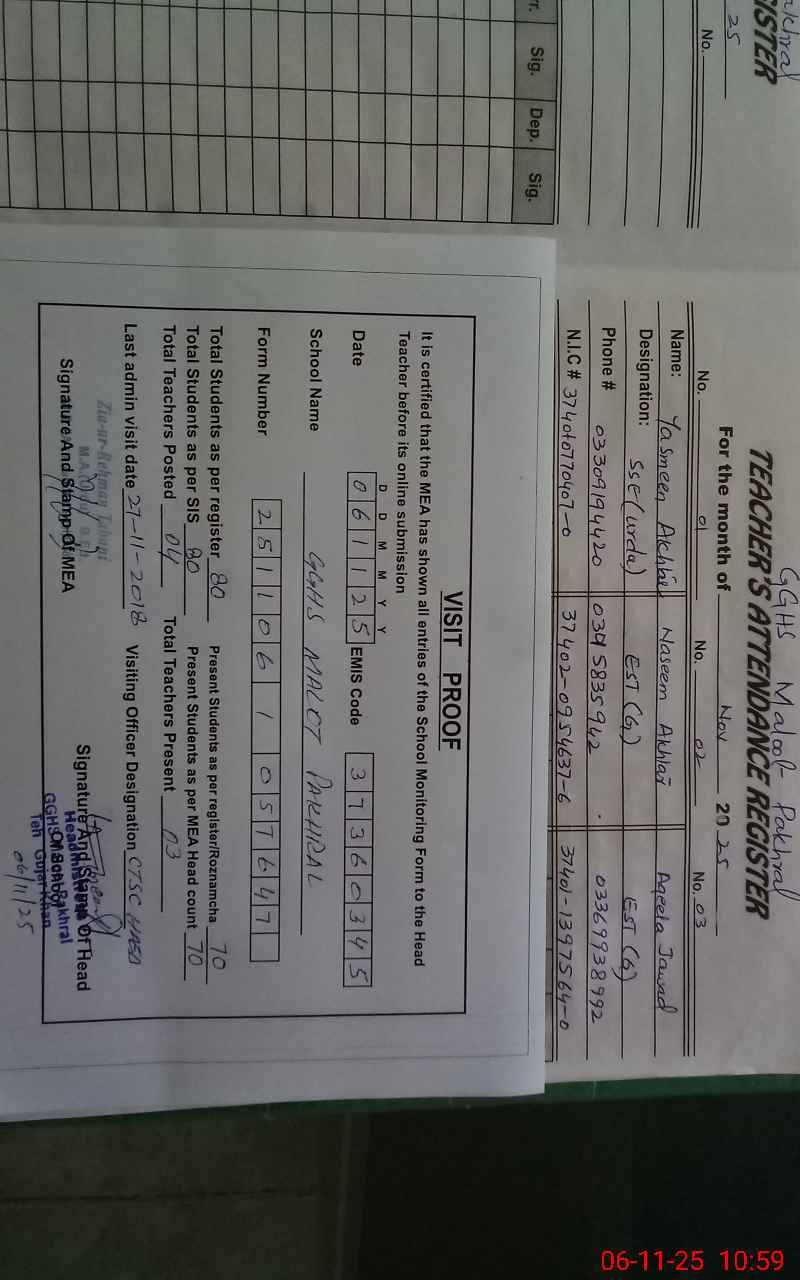 akhral
GISTER
25
No.
r. Sig. Dep. Sig.
GGHS Malool- Pakhral
TEACHER'S ATTENDANCE REGISTER
For the month of Nov 20 25
No. 01 No. 02 No. 03
Name: Yasmeen Akhtar Naseem Akhtar Aqeela Jawad
Designation: SSE (urdu) EST (G) EST (G)
Phone # 03309194420 0345835942 03369938992
N.I.C # 3740 0770407-0 37402-0954637-6 37401-1397564-0
VISIT PROOF
It is certified that the MEA has shown all entries of the School Monitoring Form to the Head
Teacher before its online submission
D D M M Y Y
Date 0 6 1 1 2 5 EMIS Code 3 7 3 6 0 3 4 5
School Name GGHS MALOT PAKHRAL
Form Number 2 5 1 1 0 6 1 0 5 7 6 4 7
Total Students as per register 80 Present Students as per register/Roznamcha 70
Total Students as per SIS 80 Present Students as per MEA Head count 70
Total Teachers Posted 04 Total Teachers Present 03
Last admin visit date 27-11-2018 Visiting Officer Designation CTSC
Zia-ur-Rehman
Signature And Stamp Of MEA Signature And Stamp Of Head
Headmistress
GGHS Pakhral
Teh Gujar Khan
06/11/25
06-11-25 10:59